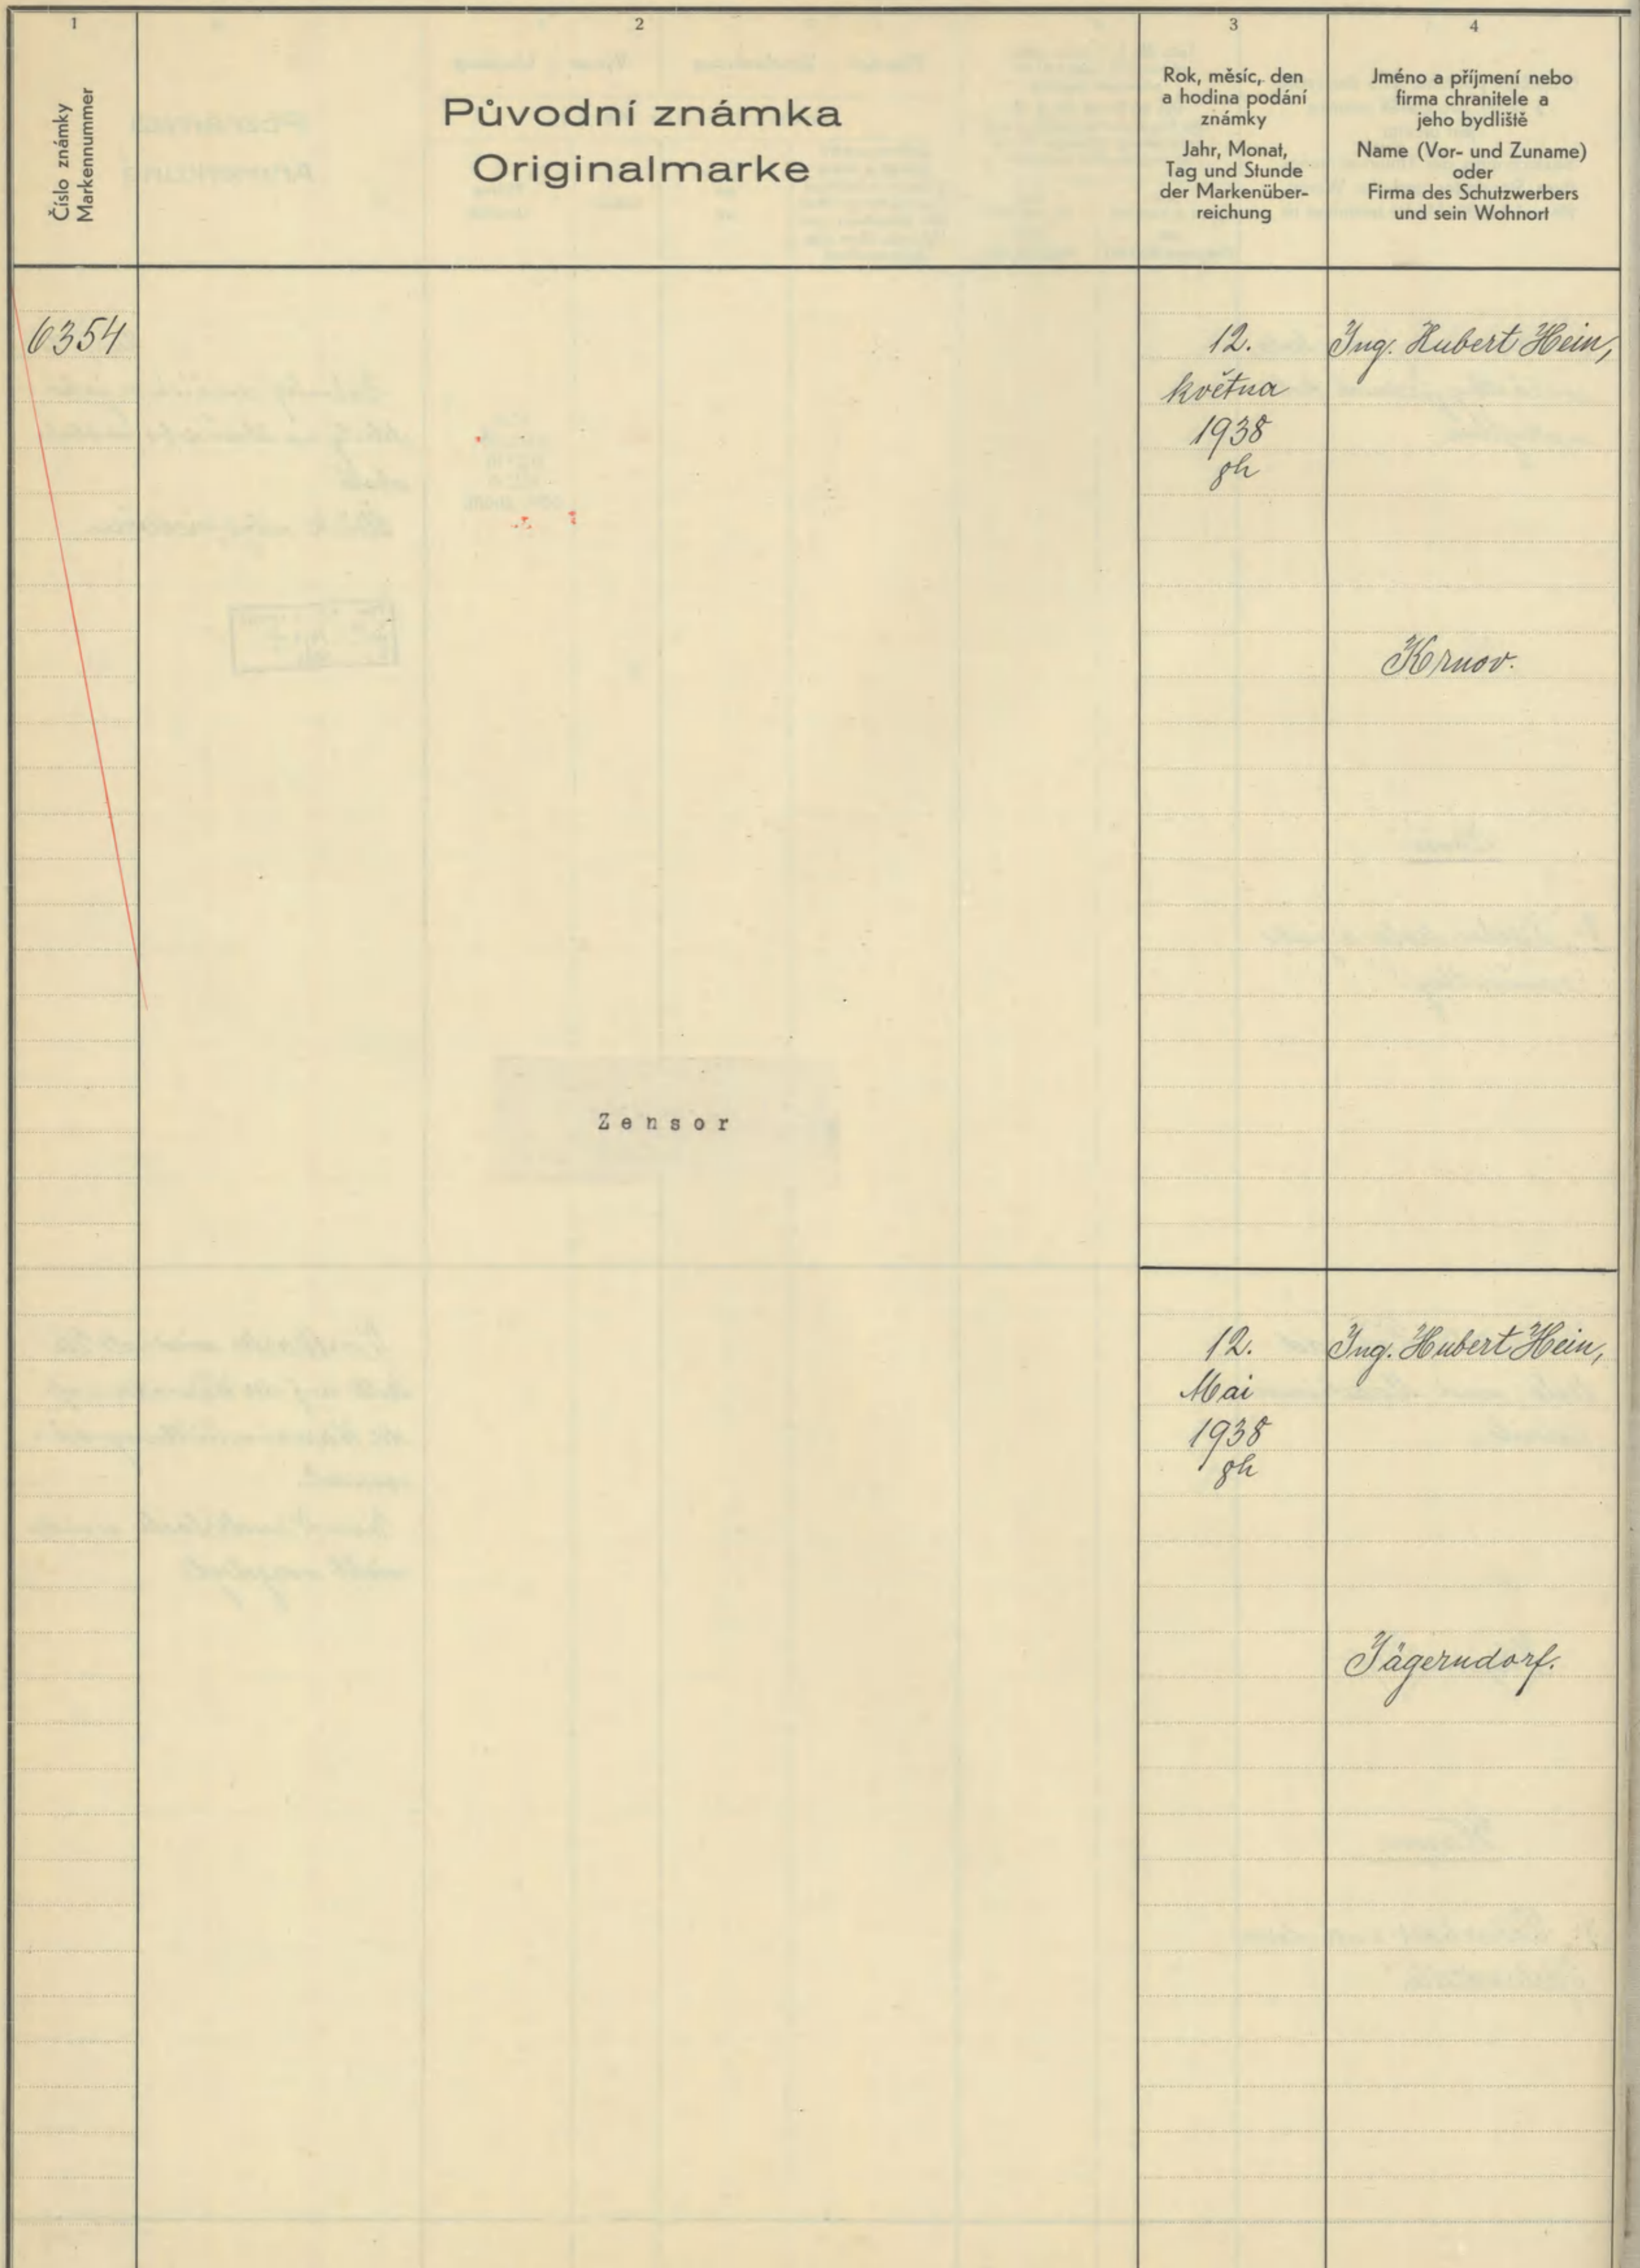 1
Číslo známky
Markennummer
2
Původní známka
Originalmarke
3
Rok, měsíc, den
a hodina podání
známky
Jahr, Monat,
Tag und Stunde
der Markenüber-
reichung
4
Jméno a příjmení nebo
firma chranitele a
jeho bydliště
Name (Vor- und Zuname)
oder
Firma des Schutzwerbers
und sein Wohnort
6354
12.
května
1938
8h
Ing. Hubert Hein,
Krnov.
Zensor
12.
Mai
1938
8h
Ing. Hubert Hein,
Jägerndorf.